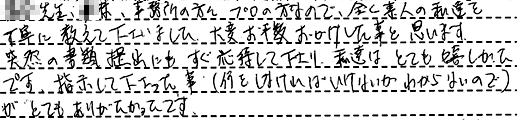 先生、様、事務所の方々 プロの方なので、全く素人の私達を
丁寧に教えて下さいました。大変お手数おかけした事と思います。
突然の書類提出にも すぐ応待して下さり、私達は とても嬉しかった
です。指示して下さった事 (何をしなければいけないか わからないので)
が とてもありがたかったです。